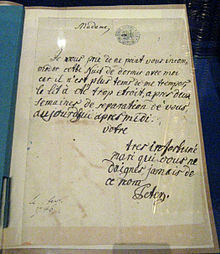 Madame
Je vous prie de ne point vous incom
moder cette Nuit de dormir avec moi
car il n'est plus tems de me tromper
le lit a été trop etroit, apres deux
semaines de separation de vous
aujourd'hui apres midi
votre
tres infortuné
mari qui vous ne
daignez jamais de
ce nom
Peter